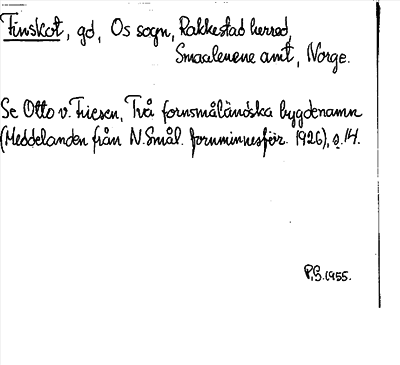 Finskot, gd, Os sogn, Rakkestad herred,
Smaalenene amt, Norge.
Se Otto v. Friesen, Två fornsmåländska bygdenamn
(Meddelanden från N. Smål. fornminnesför. 1926), s. 14.
P.S. 1955.